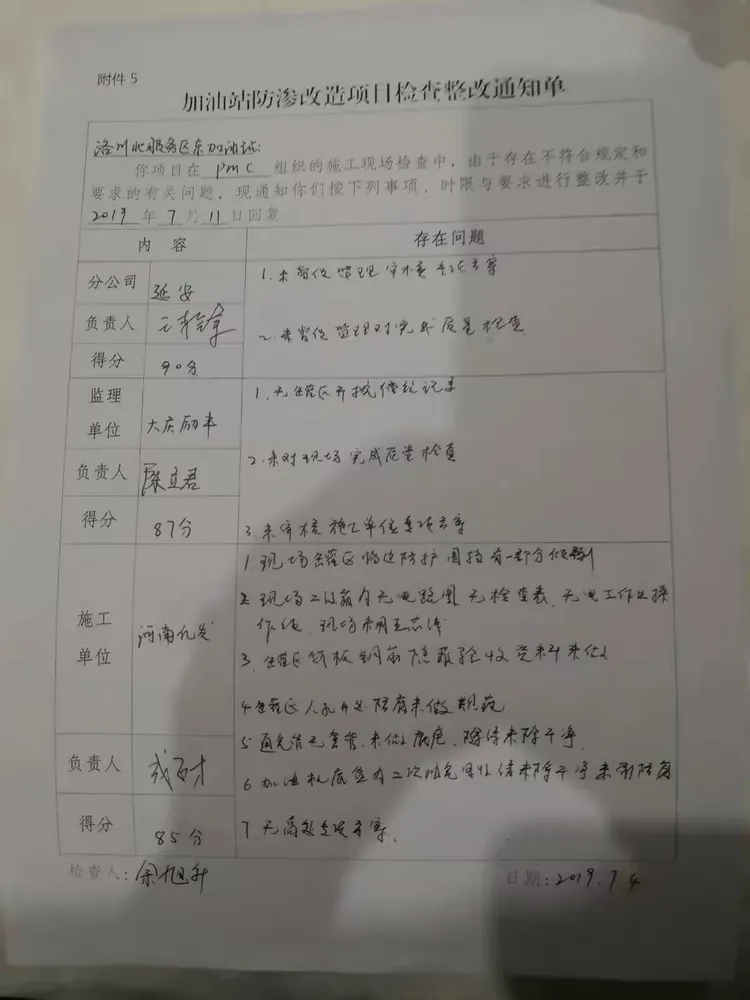 附件5
加油站防渗改造项目检查整改通知单
洛川北服务区东加油站:
你项目在 pmc 组织的施工现场检查中，由于存在不符合规定和
要求的有关问题，现通知你们按下列事项、时限与要求进行整改并于
2019 年 7 月 11 日回复
内 容
存在问题
分公司
延安
负责人
得分
90分
1.未督促监理审核专项方案
2.未督促监理对完成质量检查
监理
单位
大庆励丰
负责人
屈立君
得分
87分
1.无罐区开挖旁站记录
2.未对现场完成质量检查
3.未审核施工单位专项方案
施工
单位
河南九发
负责人
得分
85分
1.现场罐区临边防护围挡有一部分倾斜
2.现场二级箱内无电路图 无检查表、无电工作业操
作证、现场未用五芯线
3、罐区筏板钢筋隐蔽验收资料未做
4.罐区人孔井处防腐未做规范
5 通气管无套管、未做底座、除锈未除干净、
6 加油机底盘内二次油气回收 未除干净未刷防腐
7 无高处专项方案、
检查人:余旭升
日期:2019.7.4